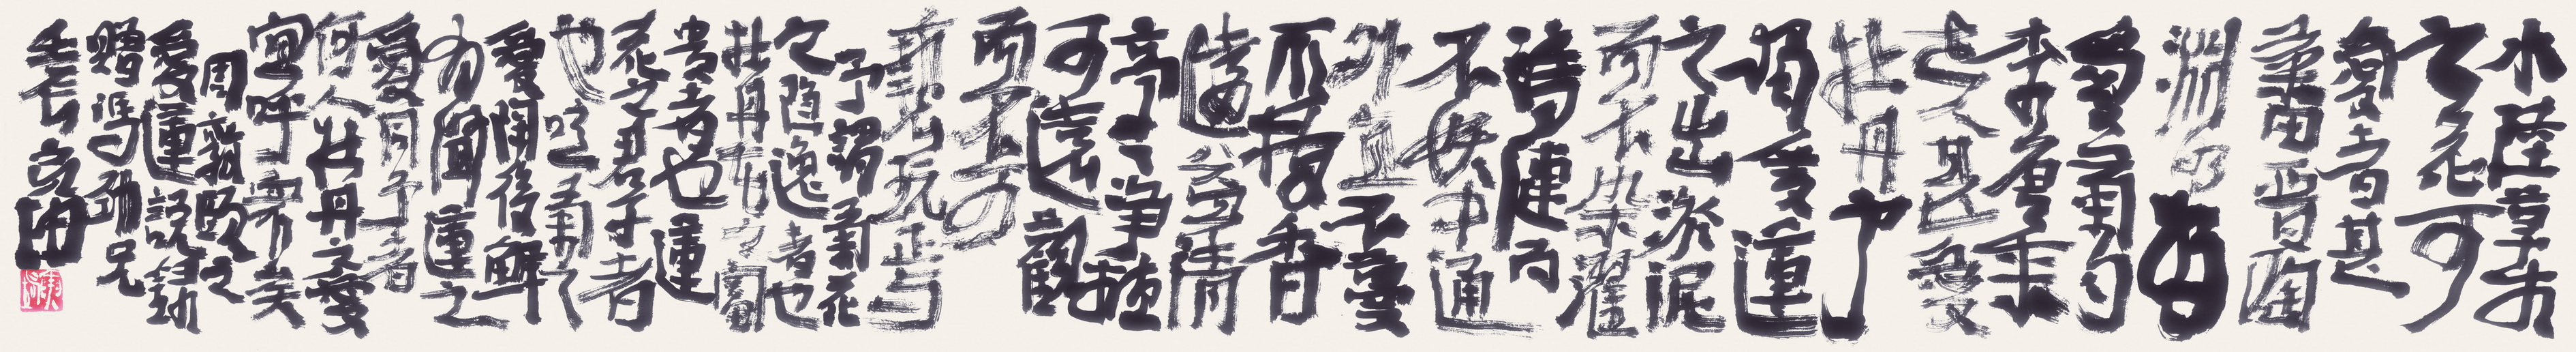 水陸草木
之花可
愛者甚
蕃晉陶
淵明獨
愛菊自
李唐來
世人甚愛
牡丹予
獨愛蓮
之出淤泥
而不染濯
清漣而
不妖中通
外直不蔓
不枝香
遠益清
亭亭净植
可遠觀
而不可
褻玩焉
予謂菊花
之隐逸者也
牡丹花之富
貴者也蓮
花之君子者
也噫菊之
愛陶後鮮
有聞蓮之
愛同予者
何人牡丹之愛
宜乎衆矣
周敦頤之
愛蓮說録
贈馮勋兄